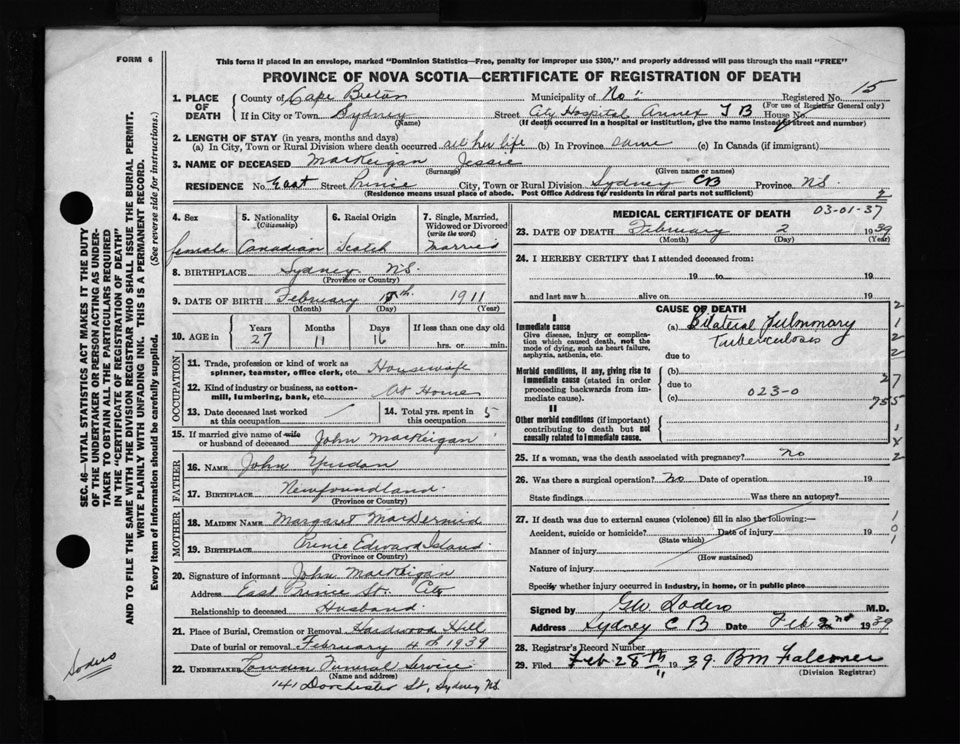 FORM 6
This form if placed in an envelope, marked "Dominion Statistics—Free, penalty for improper use $300," and properly addressed will pass through the mail "FREE"
PROVINCE OF NOVA SCOTIA—CERTIFICATE OF REGISTRATION OF DEATH
15
1. PLACE OF DEATH County of Cape Breton Municipality of No: Registered No.
(For use of Registrar General only)
If in City or Town Sydney Street City Hospital Annex T B House No.
(Name) (If death occurred in a hospital or institution, give the name instead of street and number)
2. LENGTH OF STAY (in years, months and days)
(a) In City, Town or Rural Division where death occurred all her life (b) In Province same (c) In Canada (if immigrant)
3. NAME OF DECEASED MacKeigan Jessie
(Surname) (Given name or names)
RESIDENCE No. East Street Prince City, Town or Rural Division Sydney CB Province NS.
(Residence means usual place of abode. Post Office Address for residents in rural parts not sufficient)
2
4. Sex
female
5. Nationality
(Citizenship)
Canadian
6. Racial Origin
Scotch
7. Single, Married, Widowed or Divorced
(write the word)
Married
8. BIRTHPLACE Sydney NS.
(Province or Country)
9. DATE OF BIRTH February th. 1911
(Month) (Day) (Year)
10. AGE in Years 27 Months 11 Days 16 If less than one day old
hrs. or min.
OCCUPATION
11. Trade, profession or kind of work as spinner, teamster, office clerk, etc. Housewife
12. Kind of industry or business, as cotton-mill, lumbering, bank, etc. At Home
13. Date deceased last worked at this occupation
14. Total yrs. spent in this occupation 5
15. If married give name of wife or husband of deceased John MacKeigan
FATHER
16. NAME John
17. BIRTHPLACE Newfoundland.
(Province or Country)
MOTHER
18. MAIDEN NAME Margaret MacDermid
19. BIRTHPLACE Prince Edward Island
(Province or Country)
20. Signature of informant John MacKeigan
Address East Prince St. City
Relationship to deceased Husband.
21. Place of Burial, Cremation or Removal Hardwood Hill
Date of burial or removal February 4th 1939
22. UNDERTAKER Funeral Service
(Name and address)
141 Dorchester St, Sydney NS.
MEDICAL CERTIFICATE OF DEATH 03-01-37
23. DATE OF DEATH February 2 1939
(Month) (Day) (Year)
24. I HEREBY CERTIFY that I attended deceased from:
19 to 19
and last saw h alive on 19
CAUSE OF DEATH
I
Immediate cause
Give disease, injury or complication which caused death, not the mode of dying, such as heart failure, asphyxia, asthenia, etc.
(a) Bilateral Pulmonary
Tuberculosis
due to
Morbid conditions, if any, giving rise to immediate cause (stated in order proceeding backwards from immediate cause).
(b)
due to
(c) 023-0
II
Other morbid conditions (if important) contributing to death but not causally related to immediate cause.
25. If a woman, was the death associated with pregnancy? No
26. Was there a surgical operation? No Date of operation 19
State findings Was there an autopsy?
27. If death was due to external causes (violence) fill in also the following:—
Accident, suicide or homicide? Date of injury 19
(State which)
Manner of injury
(How sustained)
Nature of injury
Specify whether injury occurred in industry, in home, or in public place
Signed by GW Sodero M.D.
Address Sydney C B Date Feb 2nd 1939
28. Registrar's Record Number
29. Filed Feb 28th 1939. BM Falconer
(Division Registrar)
SEC. 46—VITAL STATISTICS ACT MAKES IT THE DUTY
OF THE UNDERTAKER OR PERSON ACTING AS UNDER-
TAKER TO OBTAIN ALL THE PARTICULARS REQUIRED
IN THE "CERTIFICATE OF REGISTRATION OF DEATH"
AND TO FILE THE SAME WITH THE DIVISION REGISTRAR WHO SHALL ISSUE THE BURIAL PERMIT.
WRITE PLAINLY WITH UNFADING INK. THIS IS A PERMANENT RECORD.
Every item of information should be carefully supplied. (See reverse side for instructions.)
Sodero